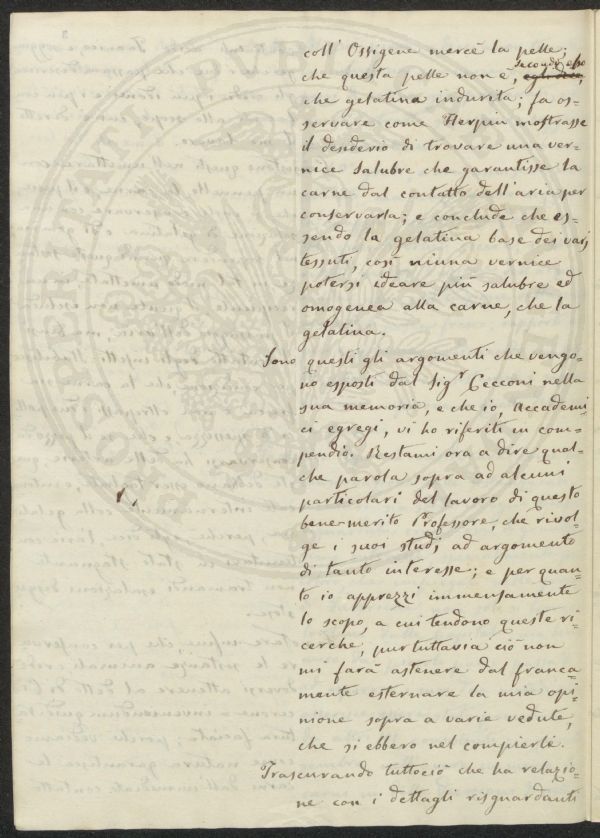 coll' Ossigene mercè la pelle;
che questa pelle non è, secondo esso
che gelatina indurita; fa os=
servare come Herpin mostrasse
il desiderio di trovare una ver=
nice salubre che garantisse la
carne dal contatto dell'aria per
conservarla; e conclude che es=
sendo la gelatina base dei varj
tessuti, così niuna vernice
potersi ideare più salubre ed
omogenea alla carne, che la
gelatina.
Sono questi gli argomenti che vengo=
no esposti dal Sigr Cecconi nella
sua memoria, e che io, Accademi
ci egregi, vi ho riferiti in com=
pendio. Restami ora a dire qual=
che parola sopra ad alcuni
particolari del lavoro di questo
bene=merito Professore, che rivol=
ge i suoi studj ad argomento
di tanto interesse; e per quan=
to io apprezzi immensamente
lo scopo, a cui tendono queste ri=
cerche, pur tuttavia ciò non
mi farà astenere dal franca=
mente esternare la mia opi=
nione sopra a varie vedute,
che si ebbero nel compierle.
Trascurando tuttociò che ha relazio=
ne con i dettagli risguardanti